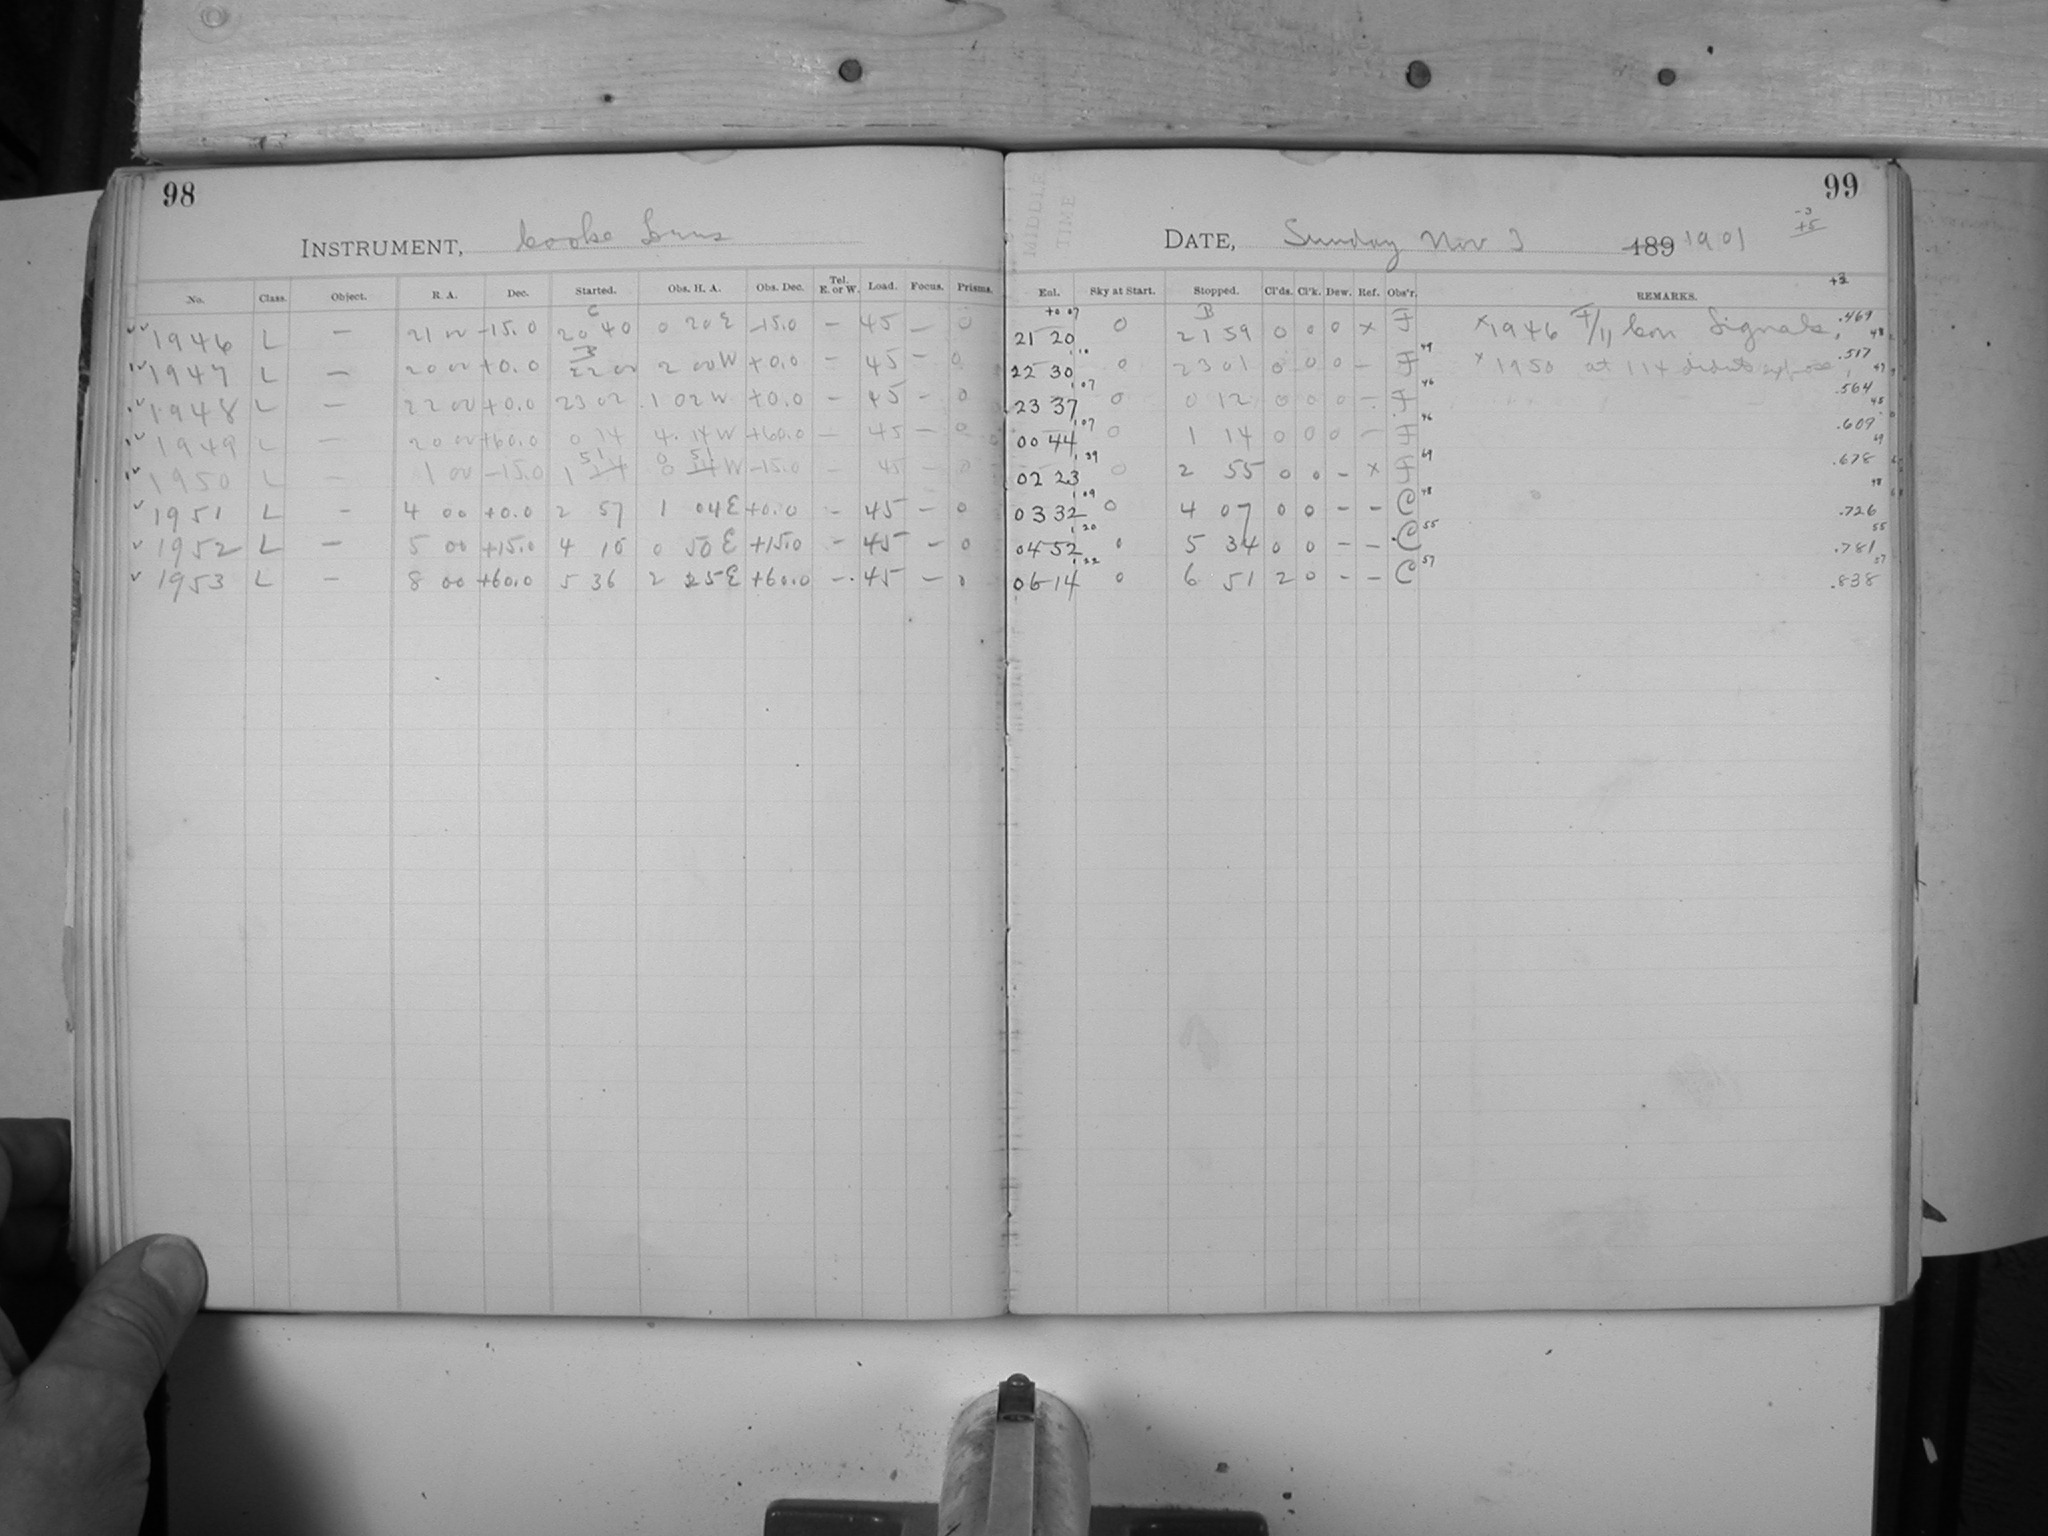 98
INSTRUMENT, Cooke Lens
No. Class. Object. R. A. Dec. Started. Obs. H. A. Obs. Dec. Tel. E. or W. Load. Focus. Prisms.
1946 L — 21 00 -15.0 20 40 0 20E -15.0 — 45 — 0
1947 L — 20 00 +0.0 22 00 2 00W +0.0 — 45 — 0
1948 L — 22 00 +0.0 23 02 1 02W +0.0 — 45 — 0
1949 L — 20 00 +60.0 0 14 4 14W +60.0 — 45 — 0
1950 L — 1 00 -15.0 1 51 0 51W -15.0 — 45 — 0
1951 L — 4 00 +0.0 2 57 1 04E +0.0 — 45 — 0
1952 L — 5 00 +15.0 4 10 0 50E +15.0 — 45 — 0
1953 L — 8 00 +60.0 5 36 2 25E +60.0 — 45 — 0
99
MIDDLE TIME
DATE, Sunday Nov 3 189 1901
-3
+5
+2
Exl. Sky at Start. Stopped. Cl'ds. Cl'k. Dew. Ref. Obs'r. REMARKS.
21 20 0 21 59 0 0 0 x F x1946 F/11 on Signals, .469
22 30 0 23 01 0 0 0 — F x 1950 at 114 didn't expose, .517
23 37 0 0 12 0 0 0 — F .564
00 44 0 1 14 0 0 0 — F .609
02 23 0 2 55 0 0 — x F .678
03 32 0 4 07 0 0 — — C .726
04 52 0 5 34 0 0 — — C .781
06 14 0 6 51 2 0 — — C .838